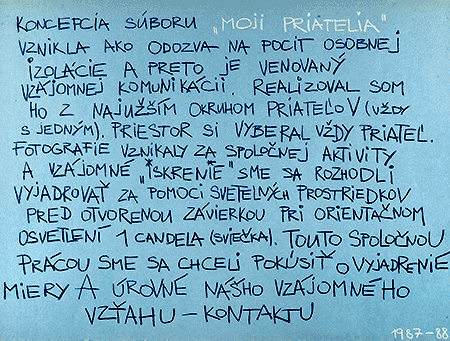 KONCEPCIA SÚBORU „MOJI PRIATELIA"
VZNIKLA AKO ODOZVA NA POCIT OSOBNEJ
IZOLÁCIE A PRETO JE VENOVANÝ
VZÁJOMNEJ KOMUNIKÁCII. REALIZOVAL SOM
HO Z NAJUŽŠÍM OKRUHOM PRIATEĽOV (VŽDY
S JEDNÝM). PRIESTOR SI VYBERAL VŽDY PRIATEĽ.
FOTOGRAFIE VZNIKALY ZA SPOLOČNEJ AKTIVITY
A VZÁJOMNÉ „ISKRENIE" SME SA ROZHODLI
VYJADROVAŤ ZA POMOCI SVETELNÝCH PROSTRIEDKOV
PRED OTVORENOU ZÁVIERKOU PRI ORIENTAČNOM
OSVETLENÍ 1 CANDELA (SVIEČKA). TOUTO SPOLOČNOU
PRÁCOU SME SA CHCELI POKÚSIŤ O VYJADRENIE
MIERY A ÚROVNE NÁŠHO VZÁJOMNÉHO
VZŤAHU – KONTAKTU
1987-88